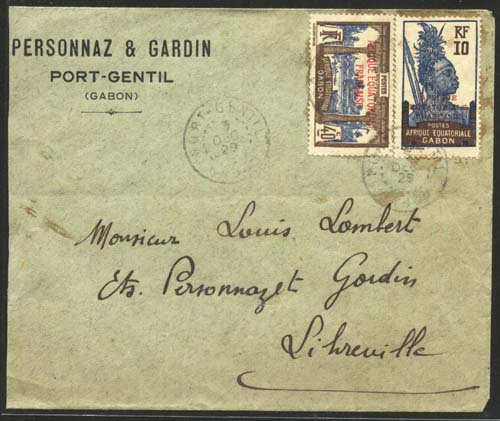 PERSONNAZ & GARDIN
PORT-GENTIL
(GABON)
PORT-GENTIL
3
DEC
29
40
POSTES
GABON
AFRIQUE EQUATORIALE
FRANÇAISE
RF
10
POSTES
AFRIQUE EQUATORIALE
GABON
DEC
29
Monsieur Louis Lombert
Ets. Personnaz et Gardin
Libreville